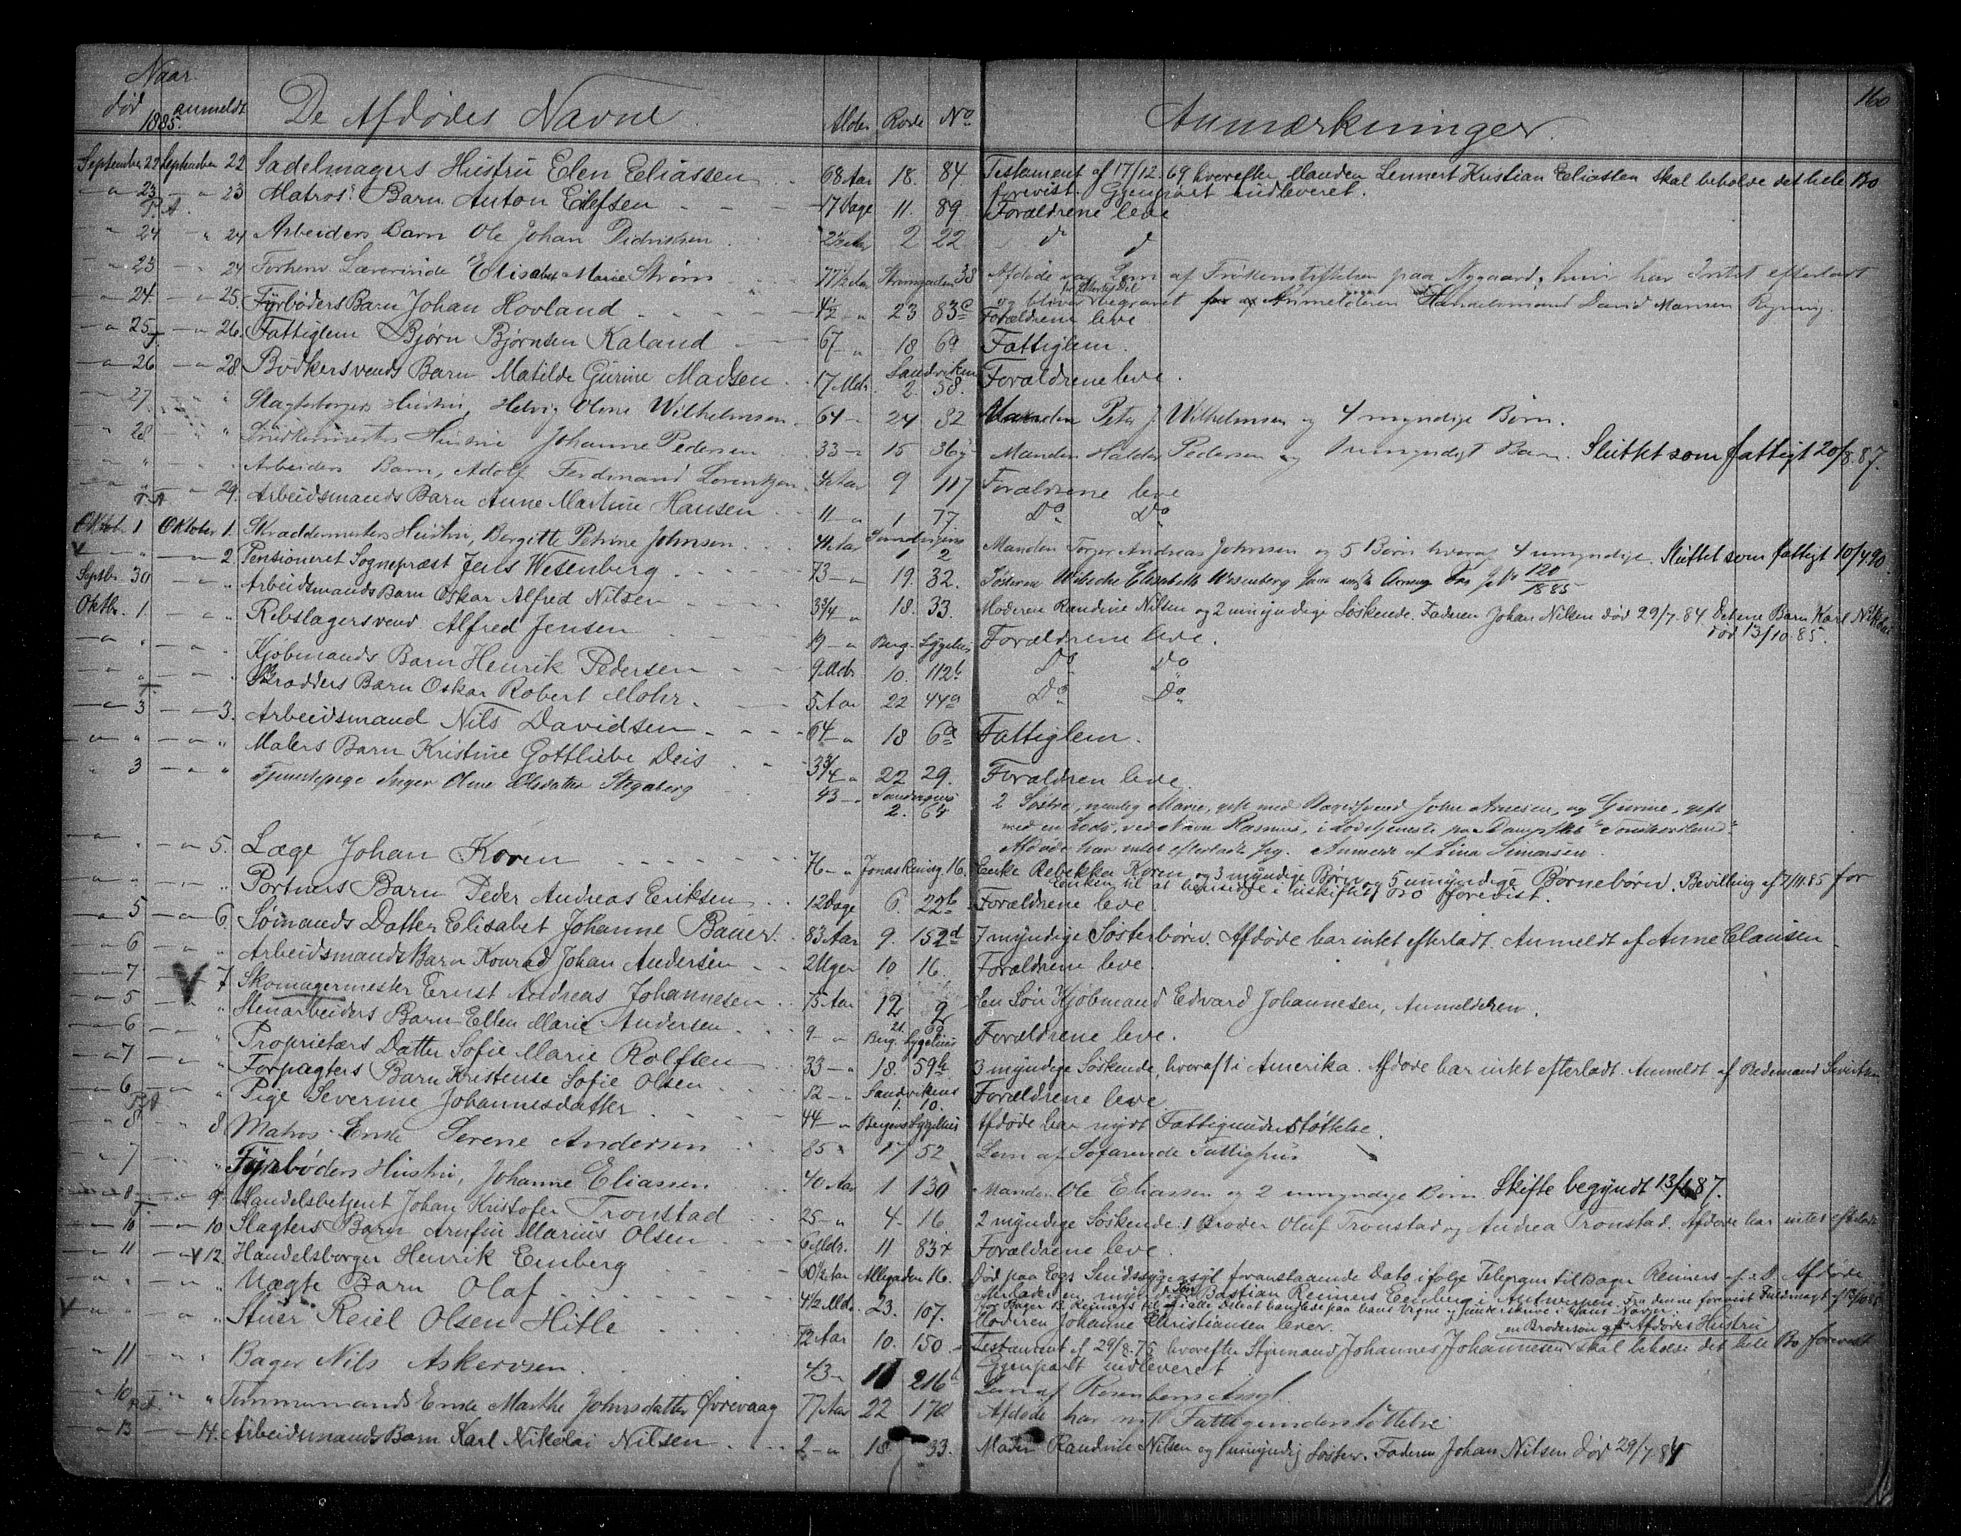 160
Naar
død anmeldt De Afdødes Navne Alder Rode No Anmærkninger.
1885.
September 22 September 22 Sadelmagers Hustru Elen Eliassen 68 Aar 18. 84 Testament af 17/12 69 hvorefter Manden Lennert Kristian Eliassen skal beholde det hele Bo
forevist. Gjenpart indleveret.
23 23 Matros' Barn Anton Eilefsen 17 Dage 11. 89. Forældrene leve
24 24 Arbeiders Barn Ole Johan Didriksen 2½ Aar 2 22 do do
23 24 Forhenv. Lærerinde Elisabet Marie Strøm 77½ Aar Strangaden 38 Afdøde var Lem af Frøkenstiftelsen paa Nygaard, hun har Intet efterladt
og bliver begravet Anmelderen Handelsmand David Mansen Regning.
24. 25. Fyrbøders Barn Johan Hovland 4½ 23 83c Forældrene leve
25 26. Fattiglem Bjørn Bjørnsen Kaland 67 18 6a Fattiglem.
26 28 Bødkersvends Barn Matilde Gurine Madsen 17 Mdr. Sandviken 2. 58. Forældrene leve.
27. Slagterborgers Hustru, Helvig Oline Wilhelmsen 64 24 32 Manden Peter J. Wilhelmsen og 4 myndige Børn.
28 Snedkermesters Hustru Johanne Pedersen 33 15 36 Manden Haldor Pedersen og 1 umyndigt Barn. Sluttet som fattigt 20/8.87.
Arbeiders Barn, Adolf Ferdinand Lorentzen Aar 9 117 Forældrene leve
29. Arbeidsmands Barn Anne Martine Hansen 11 1 77. Do Do
Oktob. 1 Oktober 1. Skræddermesters Hustru, Bergitte Petrine Johnsen 41 Aar 1 2 Manden Torger Andreas Johnsen og 5 Børn hvoraf 4 umyndige. Sluttet som fattigt 10/4.90.
2. Pensioneret Sognepræst Jens Wesenberg 73 19. 32. Elisabeth Wesenberg 120/1885
Septbr. 30 Arbeidsmands Barn Oskar Alfred Nilsen 3¾ 18. 33. Moderen Randine Nilsen og 2 umyndige Søskende. Faderen Johan Nilsen død 29/7.84. Det ene Barn Karl Nikolai
død 13/10.85.
Oktbr. 1 Rebslagersvend Alfred Jensen 19 Berg. Sygehus Forældrene leve.
Kjøbmands Barn Henrik Pedersen 9 Mdr. 10. 112b Do Do
Skrædders Barn Oskar Robert Mohr. 5 Aar 22 44a Do Do
3 3. Arbeidsmand Nils Davidsen 64 18 6a Fattiglem.
Malers Barn Kristine Gottliebe Deis 3¾ 22 29. Forældren leve
3 Tjenestepige Inger Oline Olsdatter Stegaberg 43 2. 64 2 Søstre, nemlig Marie, gift med Bagersvend John Arnesen, og Gurine, gift
med en Lods, ved Navn Rasmus, i Lodstjeneste paa Dampskib "Søndhordland".
Afdøde har intet efterladt sig. Anmeldt af Lina Simonsen.
5. Læge Johan Koren 76 Jonas Reinsg. 16. Enke Rebekka Koren og 3 myndige Børn og 5 umyndige Børnebørn. Bevilling af 7/11.85 for
Enken til at hensidde i uskiftet Bo forevist.
Portners Barn Peder Andreas Eriksen 12 Dage 6. 22b Forældrene leve.
5 6. Sømands Datter Elisabet Johanne Bauer. 83 Aar 9. 152d 7 myndige Søsterbørn. Afdøde har intet efterladt. Anmeldt af Anne Clausen
6 Arbeidsmands Barn Konrad Johan Andersen 2 Uger 10 16. Forældrene leve.
7 7 Skomagermester Ernst Andreas Johannesen 75 Aar 12 9 En Søn Kjøbmand Edvard Johannesen, Anmelderen.
5 Stenarbeiders Barn Ellen Marie Andersen 9 Berg. Sygehus Forældrene leve.
6 Proprietærs Datter Sofie Marie Rolfsen 33 18. 59b 3 myndige Søskende, hvoraf 1 i Amerika. Afdøde har intet efterladt. Anmeldt af Rodemand Sivertsen
7 Forpagters Barn Kristense Sofie Olsen 12 Sandvikens 1. 10. Forældrene leve
6 Pige Severine Johannesdatter 44 Bergens Sygehus Afdøde har nydt Fattigunderstøttelse.
8 8 Matros Enke Serene Andersen 85 17 52 Lem af Søfarende Fattighus
7 Fyrbøders Hustru, Johanne Eliassen 40 Aar 1 130 Manden Ole Eliassen og 2 umyndige Børn. Skifte begyndt 87.
8 9. Handelsbetjent Johan Kristofer Tronstad 25 4. 16 2 myndige Søskende: 1 Broder Oluf Tronstad og Andrea Tronstad. Afdøde har intet efterladt
10 10 Slagters Barn Arnfin Marius Olsen 6 Mdr. 11 83 Forældrene leve.
11 12. Handelsborger Henrik Ember­g 60½ Aar Allegaden 16. Død paa Eegs Sindssygeasyl foranstaaende Dato ifølge Telegram til Bager Reimers Afdøde
efterlader en myndig Søn Bastian Reimers Emberg i Antwerpen. Fra denne forevist Fuldmagt af 13/10 85
for Bager B. Reimers til i alle Dele at handle paa hans Vegne og underskrive i hans Navn.
Uægte Barn Olaf 4½ Mdr. 23. 107. Moderen Johanne Christiansen lever.
en Brodersøn af Afdødes Hustru
Stuer Reiel Olsen Hitle 72 Aar 10. 150 Testament af 29/8.75 hvorefter Styrmand Johannes Johannesen skal beholde det hele Bo forevist
Gjenpart indleveret
11 Bager Nils Askervsen 43 11 216b Lem af Rosenbergs Asyl
10 Tømmermands Enke Marthe Johnsdatter Øvrevaag 77 Aar 22 170 Afdøde har nydt Fattigunderstøttelse
13 14. Arbeidsmands Barn Karl Nikolai Nilsen 2 18 33. Moder Randine Nilsen og 1 umyndig Søster. Faderen Johan Nilsen død 29/7.84